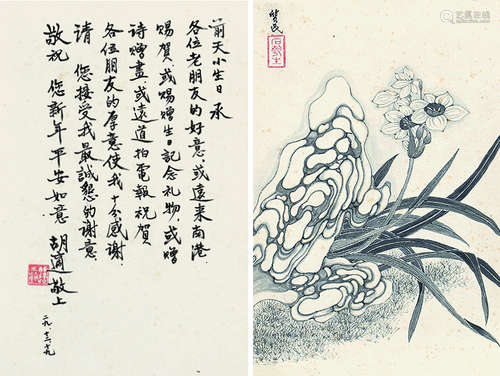 前天小生日承
各位老朋友的好意或遠来南港
賜賀或賜贈生日記念礼物或贈
詩贈畫或遠道拍電報祝賀
各位朋友的厚意使我十分感谢
請 您接受我最誠懇的谢意
敬祝 您新年平安如意
胡適敬上
艺狐在线